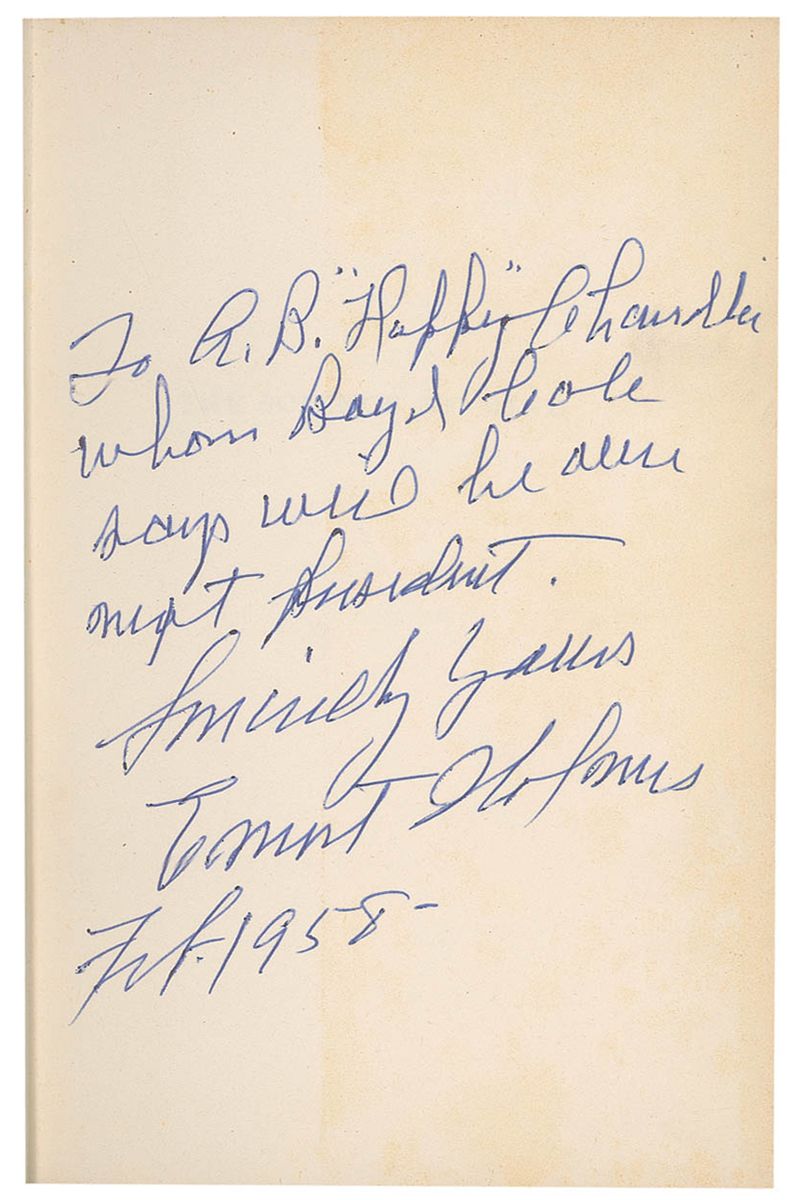 To A. B. "Happy" Chandler
whom Boyd Cole
says will be our
next president.
Sincerely Yours
Ernest Holmes
Feb. 1958-